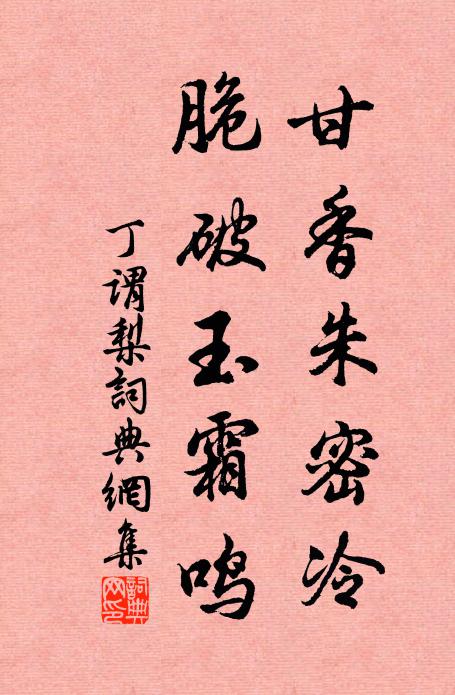 甘香朱密冷
脆破玉霜鸣
丁谓梨詞典網集
詞典网印